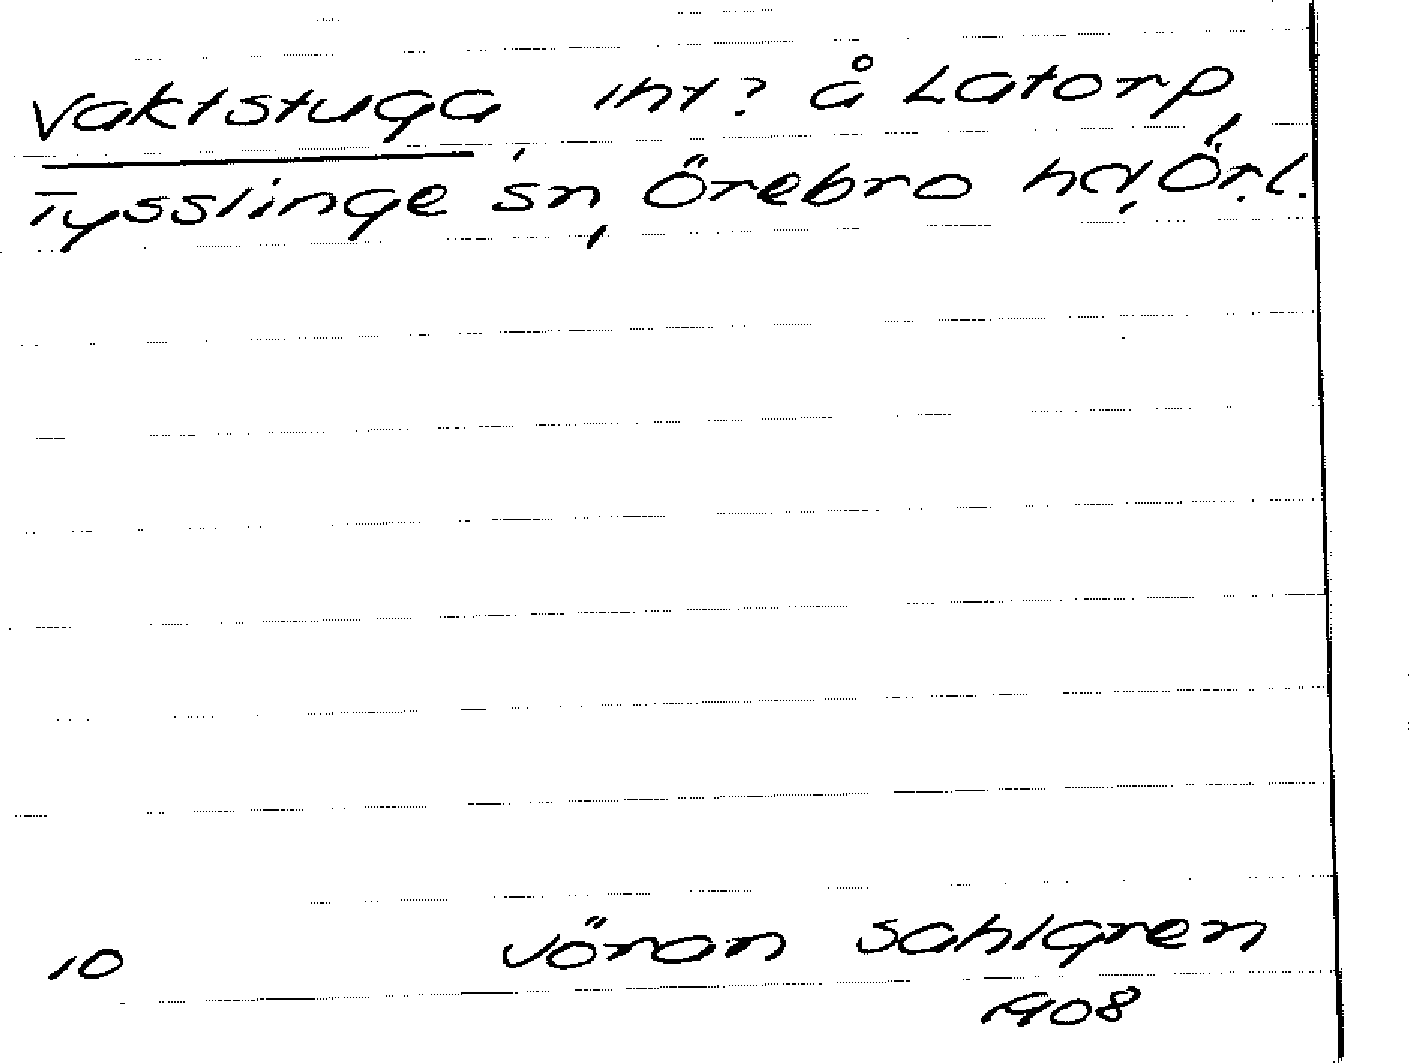 Vaktstuga, int? å Latorp,
Tysslinge sn, Örebro hd, Ör.l.
10 Jöran Sahlgren
1908